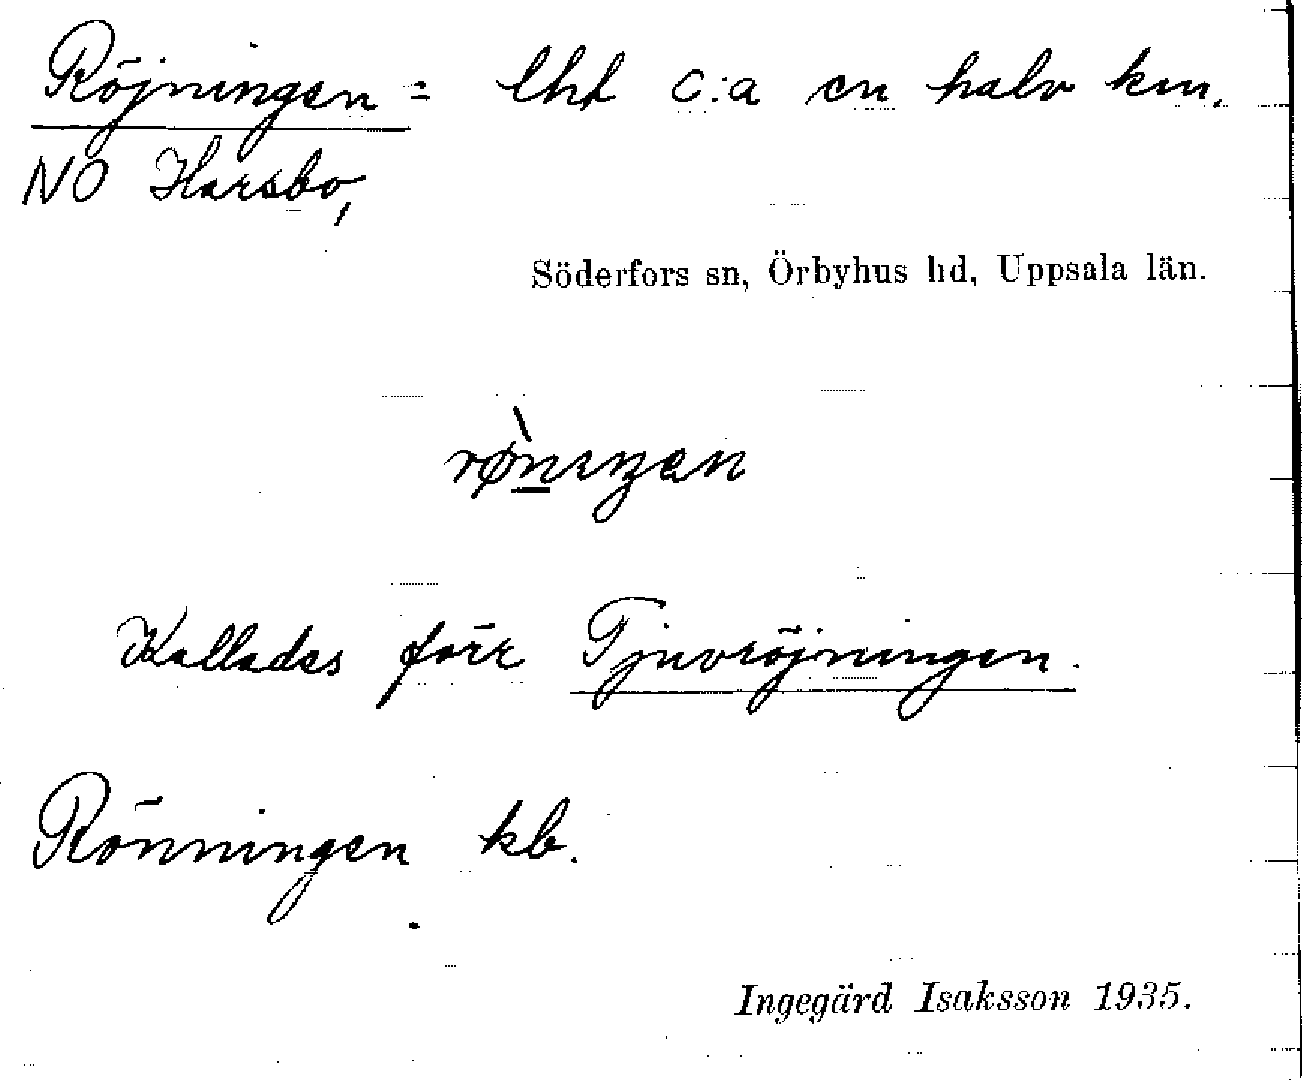 Röjningen = lht c:a en halv km.
NO Harsbo,
Söderfors sn, Örbyhus hd, Uppsala län.
rø̀nıŋen
Kallades förr Tjuvröjningen.
Rönningen kb.
Ingegärd Isaksson 1935.